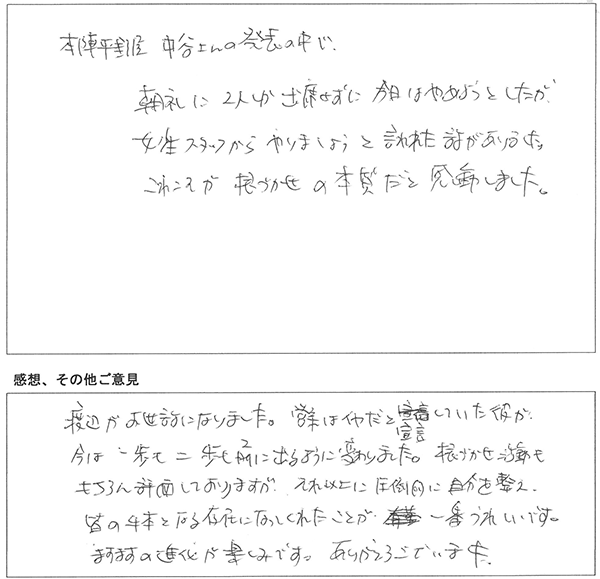 本陣平野屋 中谷さんの発表の中で、
朝礼に2人しか出席せずに今日はやめようとしたが、
女性スタッフからやりましょうと言われた話がありました。
これこそが根づかせの本質だと感動しました。
感想、その他ご意見
渡辺がお世話になりました。営業はイヤだと宣言していた彼が、
今は一歩も二歩も前に出るように変わりました。根づかせ活動も
もちろん評価しておりますが、それ以上に圧倒的に自分を整え、
皆の手本となる存在になってくれたことが 一番うれしいです。
ますますの進化が楽しみです。ありがとうございました。